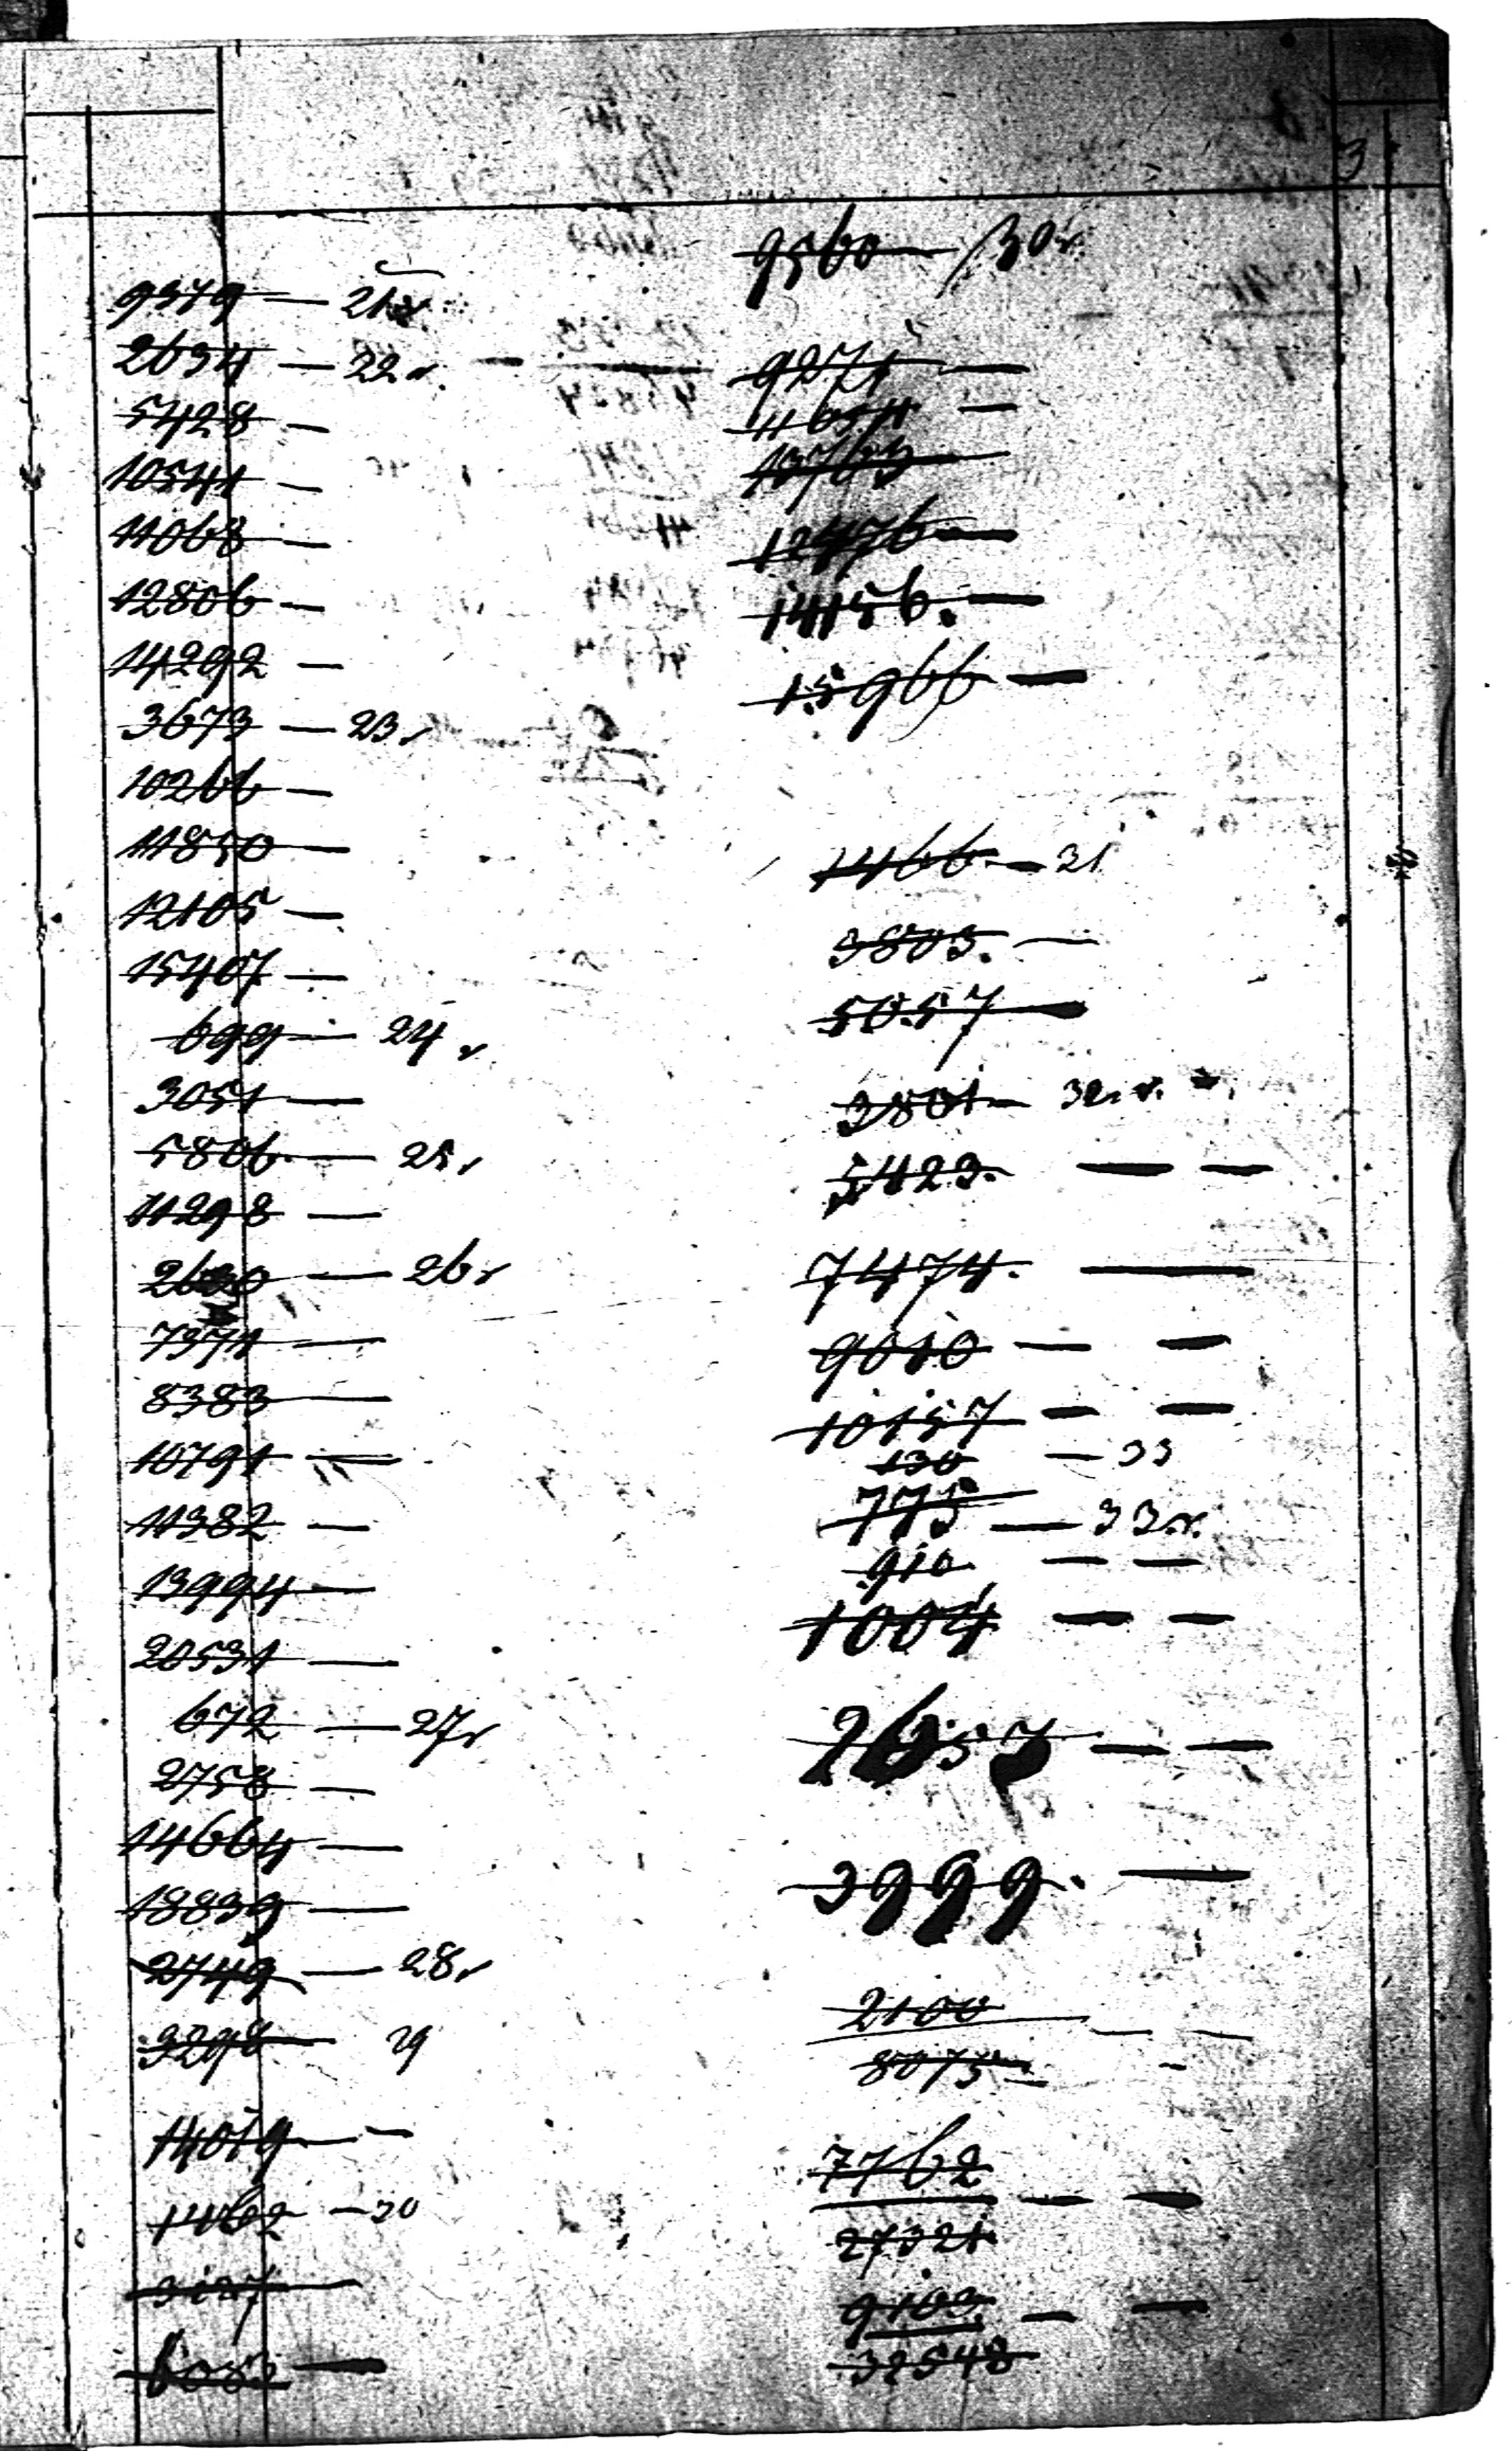 3
9379 — 21 v
2634 — 22 v.
5428 —
10541 —
11068 —
12806 —
14292 —
3673 — 23 v
10266 —
11850 —
12105 —
15407 —
699 — 24 v
3051 —
5806 — 25 v
11298 —
2630 — 26 v
7371 —
8383 —
10791 —
11382 —
13994 —
20531 —
672 — 27 v
2758 —
14664 —
18839 —
2749 — 28 v
3298 — 29
14019 —
1462 — 30
3127 —
6082 —
9560 — 30 v.
9271 —
11654 —
13763 —
12476 —
14156. —
15966 —
1466 — 31
3803. —
5057 —
3801 — 32. v.
5423. — —
7474. —
9010 — —
10157 — —
130 — 33
775 — 33 v.
910 — —
1004 — —
2657 — —
3999. —
2100 — —
8075 — -
7762 — —
27321
9103 — —
32548